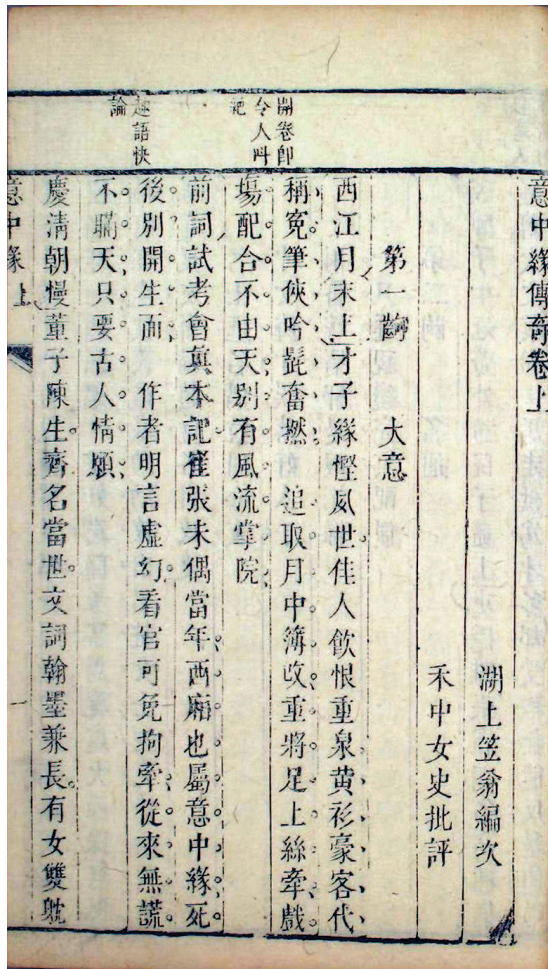 意中緣傳奇卷上
湖上笠翁編次
禾中女史批評
第一齣 大意
開卷即
令人叫
絕
西江月末上才子緣慳夙世佳人飲恨重泉黃衫豪客代
稱寃筆俠吟髭奮撚 追取月中簿改重將足上絲牽戲
塲配合不由天别有風流掌院
前詞試考會真本記崔張未偶當年西廂也屬意中緣死
趣語快
論
後別開生面 作者明言虛幻看官可免拘牽從來無謊
不瞞天只要古人情願
慶清朝慢董子陳生齊名當世文詞翰墨兼長有女雙躭
意中緣 上